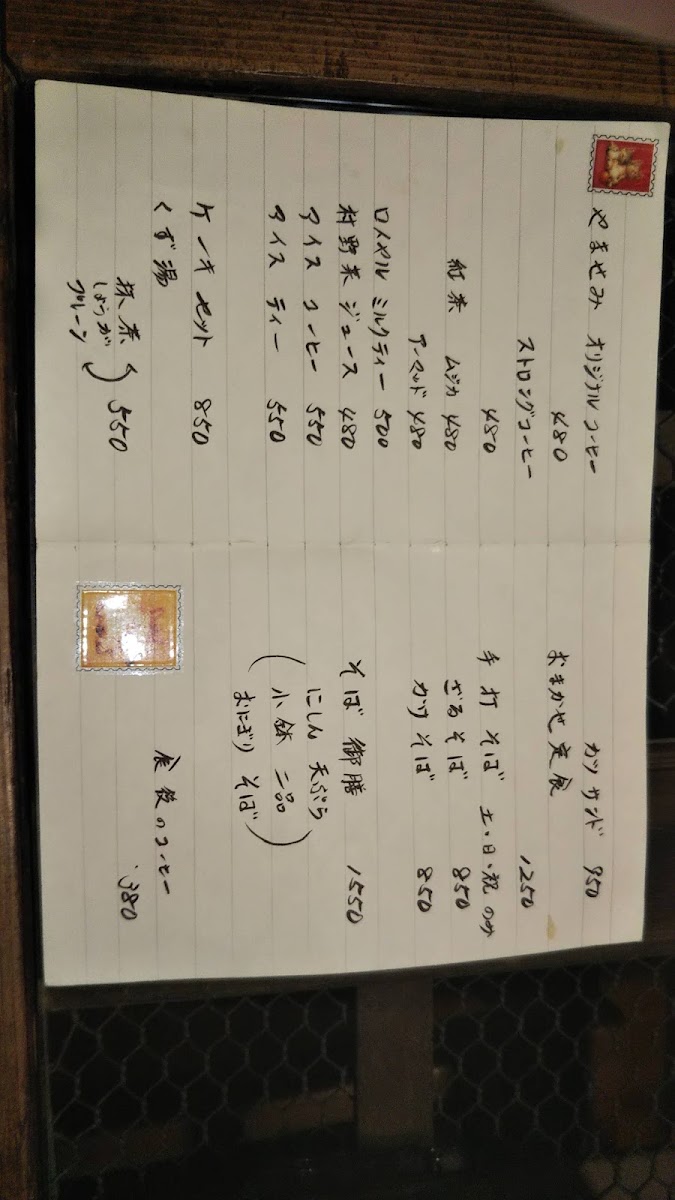 やませみ オリジナルコーヒー
480
ストロングコーヒー
480
紅茶 ムジカ 480
アーマッド 480
ロイヤルミルクティー 500
村野菜ジュース 480
アイスコーヒー 550
アイスティー 550
ケーキセット 850
くず湯
抹茶
しょうが
プレーン
550
カツサンド 950
おまかせ定食
1250
手打そば 土・日・祝のみ
ざるそば 850
かけそば 850
そば御膳 1550
(にしん 天ぷら
小鉢 二品
おにぎり そば)
食後のコーヒー
380